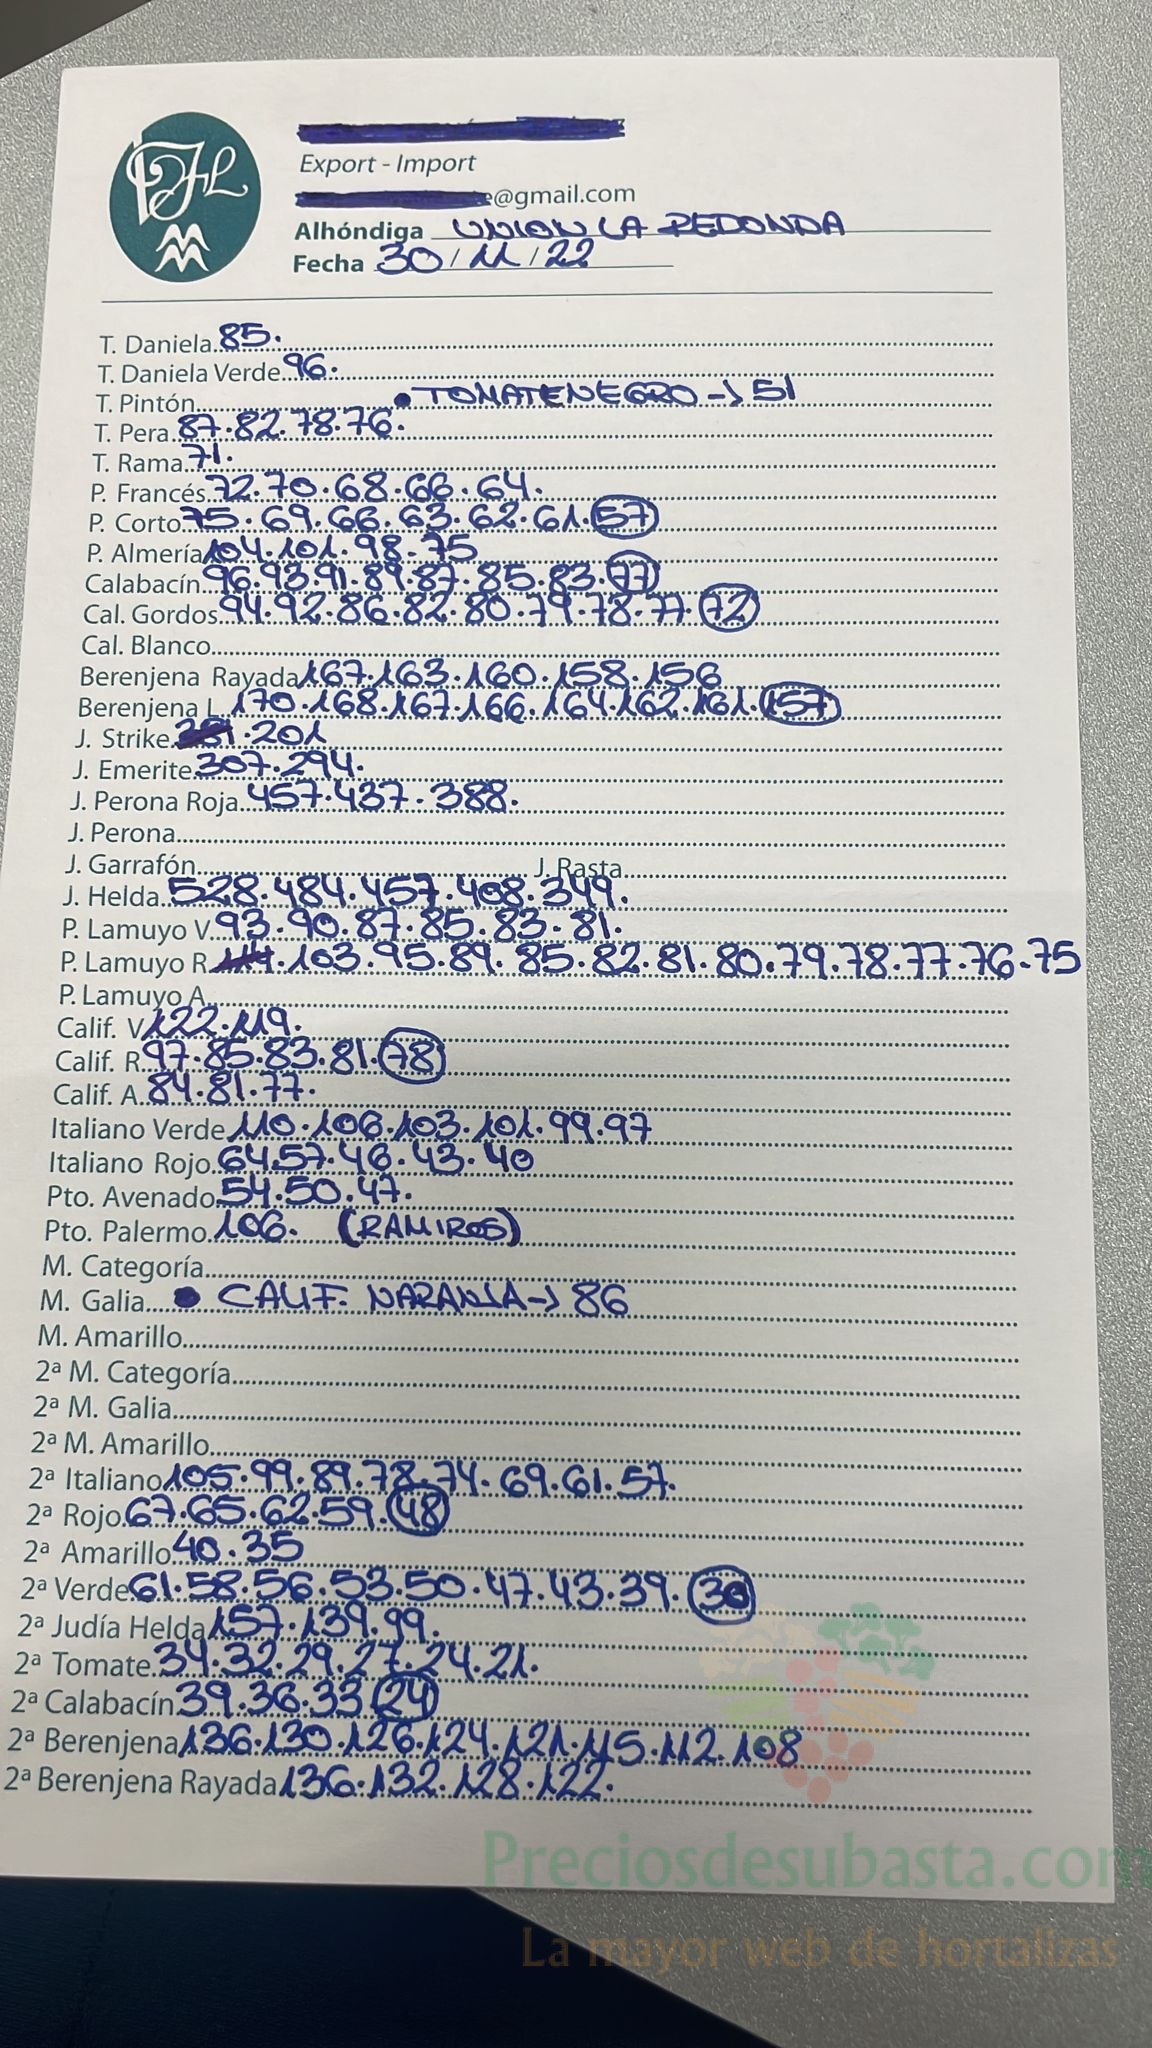 FHL
Export - Import
e@gmail.com
Alhóndiga UNION LA REDONDA
Fecha 30/11/22
T. Daniela 85.
T. Daniela Verde 96.
T. Pintón • TOMATE NEGRO → 51
T. Pera 87.82.78.76.
T. Rama 71.
P. Francés 72.70.68.66.64.
P. Corto 75.69.66.63.62.61.57
P. Almería 104.101.98.75
Calabacín 96.93.91.89.87.85.83.77
Cal. Gordos 94.92.86.82.80.79.78.77.72
Cal. Blanco
Berenjena Rayada 167.163.160.158.156
Berenjena L. 170.168.167.166.164.162.161.157
J. Strike .201
J. Emerite 307.294.
J. Perona Roja 457.437.388.
J. Perona
J. Garrafón J. Rasta
J. Helda 528.484.457.408.349.
P. Lamuyo V. 93.90.87.85.83.81.
P. Lamuyo R .103.95.89.85.82.81.80.79.78.77.76.75
P. Lamuyo A
Calif. V 122.119.
Calif. R 97.85.83.81.78
Calif. A. 84.81.77.
Italiano Verde 110.106.103.101.99.97
Italiano Rojo 64.57.46.43.40
Pto. Avenado 54.50.47.
Pto. Palermo 106. (RAMIROS)
M. Categoría
M. Galia • CALIF. NARANJA → 86
M. Amarillo
2ª M. Categoría
2ª M. Galia
2ª M. Amarillo
2ª Italiano 105.99.89.78.74.69.61.57.
2ª Rojo 67.65.62.59.48
2ª Amarillo 40.35
2ª Verde 61.58.56.53.50.47.43.39.30
2ª Judía Helda 157.139.99.
2ª Tomate 34.32.29.27.24.21.
2ª Calabacín 39.36.33 24
2ª Berenjena 136.130.126.124.121.115.112.108
2ª Berenjena Rayada 136.132.128.122.
Preciosdesubasta.com
La mayor web de hortalizas